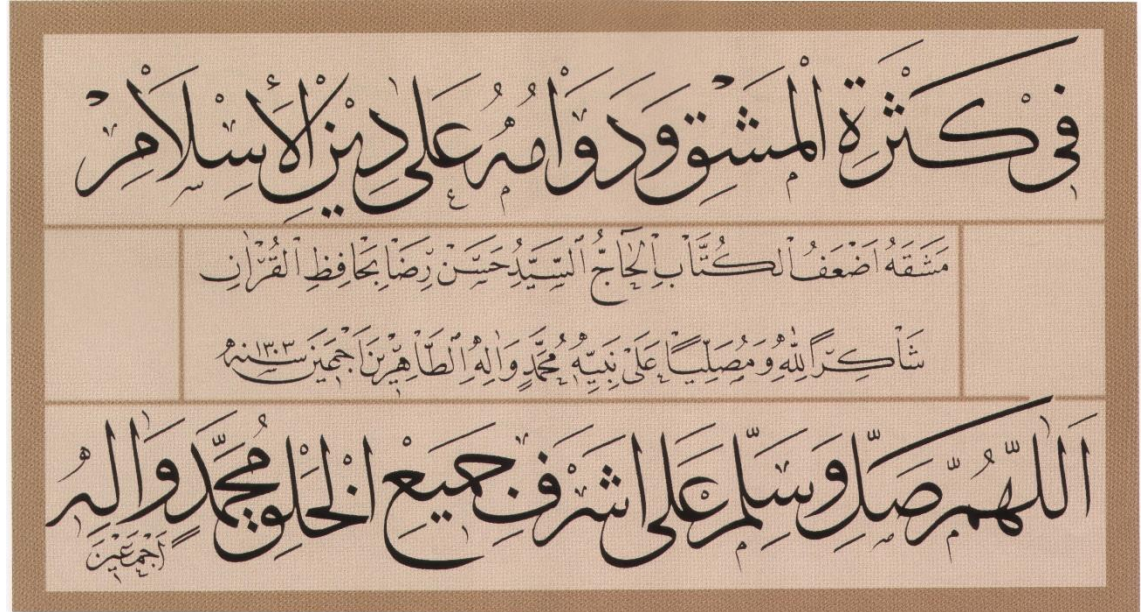 فِى كَثْرَةِ الْمَشْقِ وَدَوَامُهُ عَلٰى دِينِ الْأِسْلَامِ
مَشَقَهُ اَضْعَفُ الْكُتَّابِ الْحَاجُّ السَّيِّدُ حَسَنْ رِضَا بِحَافِظِ الْقُرْاٰنِ
شَاكِرًا لِلّٰهِ وَمُصَلِّيًا عَلٰى نَبِيِّهِ مُحَمَّدٍ وَاٰلِهِ الطَّاهِرِينَ اَجْمَعِينَ سنه ١٣٠٣
اَللّٰهُمَّ صَلِّ وَسَلِّمْ عَلٰى اَشْرَفِ جَمِيعِ الْخَلْقِ مُحَمَّدٍ وَاٰلِهِ
اَجْمَعِينَ